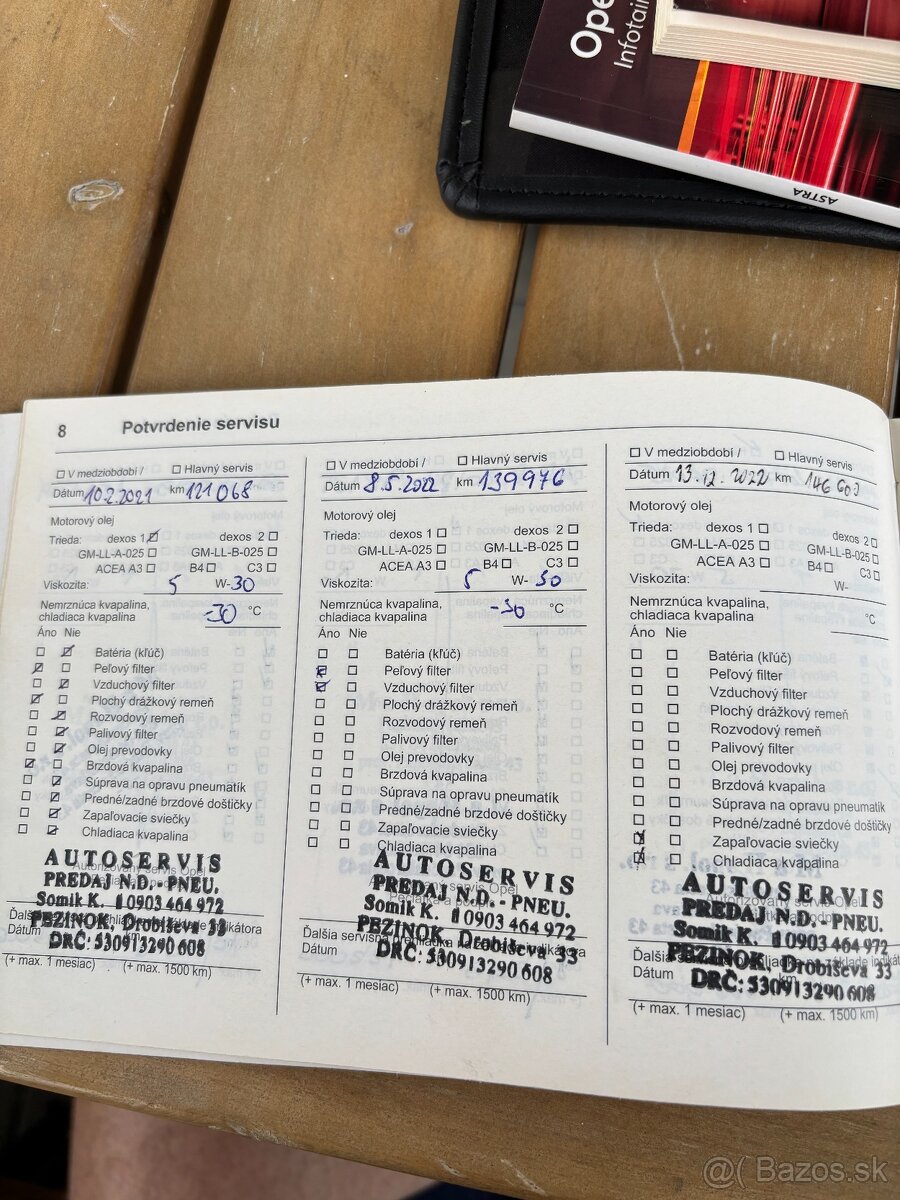 Ope
Infotai
ASTRA
8 Potvrdenie servisu
V medziobdobí / Hlavný servis
Dátum 10.2.2021 km 121068
Motorový olej
Trieda: dexos 1 dexos 2
GM-LL-A-025 GM-LL-B-025
ACEA A3 B4 C3
Viskozita: 5 W-30
Nemrznúca kvapalina,
chladiaca kvapalina -30 °C
Áno Nie
Batéria (kľúč)
Peľový filter
Vzduchový filter
Plochý drážkový remeň
Rozvodový remeň
Palivový filter
Olej prevodovky
Brzdová kvapalina
Súprava na opravu pneumatík
Predné/zadné brzdové doštičky
Zapaľovacie sviečky
Chladiaca kvapalina
AUTOSERVIS
PREDAJ N.D. - PNEU.
Somik K. 0903 464 972
PEZINOK, Drobiševa 33
DRČ: 530913290608
Dátum
(+ max. 1 mesiac) (+ max. 1500 km)
V medziobdobí / Hlavný servis
Dátum 8.5.2022 km 139976
Motorový olej
Trieda: dexos 1 dexos 2
GM-LL-A-025 GM-LL-B-025
ACEA A3 B4 C3
Viskozita: 5 W- 30
Nemrznúca kvapalina,
chladiaca kvapalina -30 °C
Áno Nie
Batéria (kľúč)
Peľový filter
Vzduchový filter
Plochý drážkový remeň
Rozvodový remeň
Palivový filter
Olej prevodovky
Brzdová kvapalina
Súprava na opravu pneumatík
Predné/zadné brzdové doštičky
Zapaľovacie sviečky
Chladiaca kvapalina
AUTOSERVIS
PREDAJ N.D. - PNEU.
Somik K. 0903 464 972
PEZINOK, Drobiševa 33
DRČ: 530913290608
Dátum
(+ max. 1 mesiac) (+ max. 1500 km)
V medziobdobí / Hlavný servis
Dátum 13.12.2022 km 146
Motorový olej
Trieda: dexos 1 dexos 2
GM-LL-A-025 GM-LL-B-025
ACEA A3 B4 C3
W-
Nemrznúca kvapalina,
chladiaca kvapalina °C
Áno Nie
Batéria (kľúč)
Peľový filter
Vzduchový filter
Plochý drážkový remeň
Rozvodový remeň
Palivový filter
Olej prevodovky
Brzdová kvapalina
Súprava na opravu pneumatík
Predné/zadné brzdové doštičky
Zapaľovacie sviečky
Chladiaca kvapalina
AUTOSERVIS
PREDAJ N.D. - PNEU.
Somik K. 0903 464 972
PEZINOK, Drobiševa 33
DRČ: 530913290608
Dátum
(+ max. 1 mesiac) (+ max. 1500 km)
@( Bazos.sk